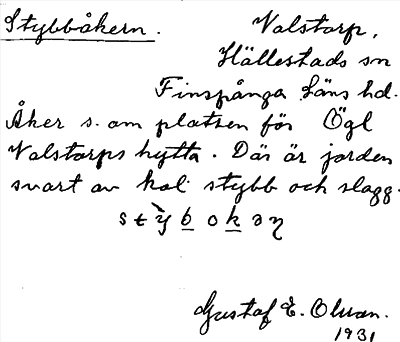 Stybbåkern. Valstorp,
Hällestads sn
Finspånga läns hd.
Åker s. om platsen för Ögl
Valstorps hytta. Där är jorden
svart av kol stybb och slagg.
Gustaf E. Olsson.
1931